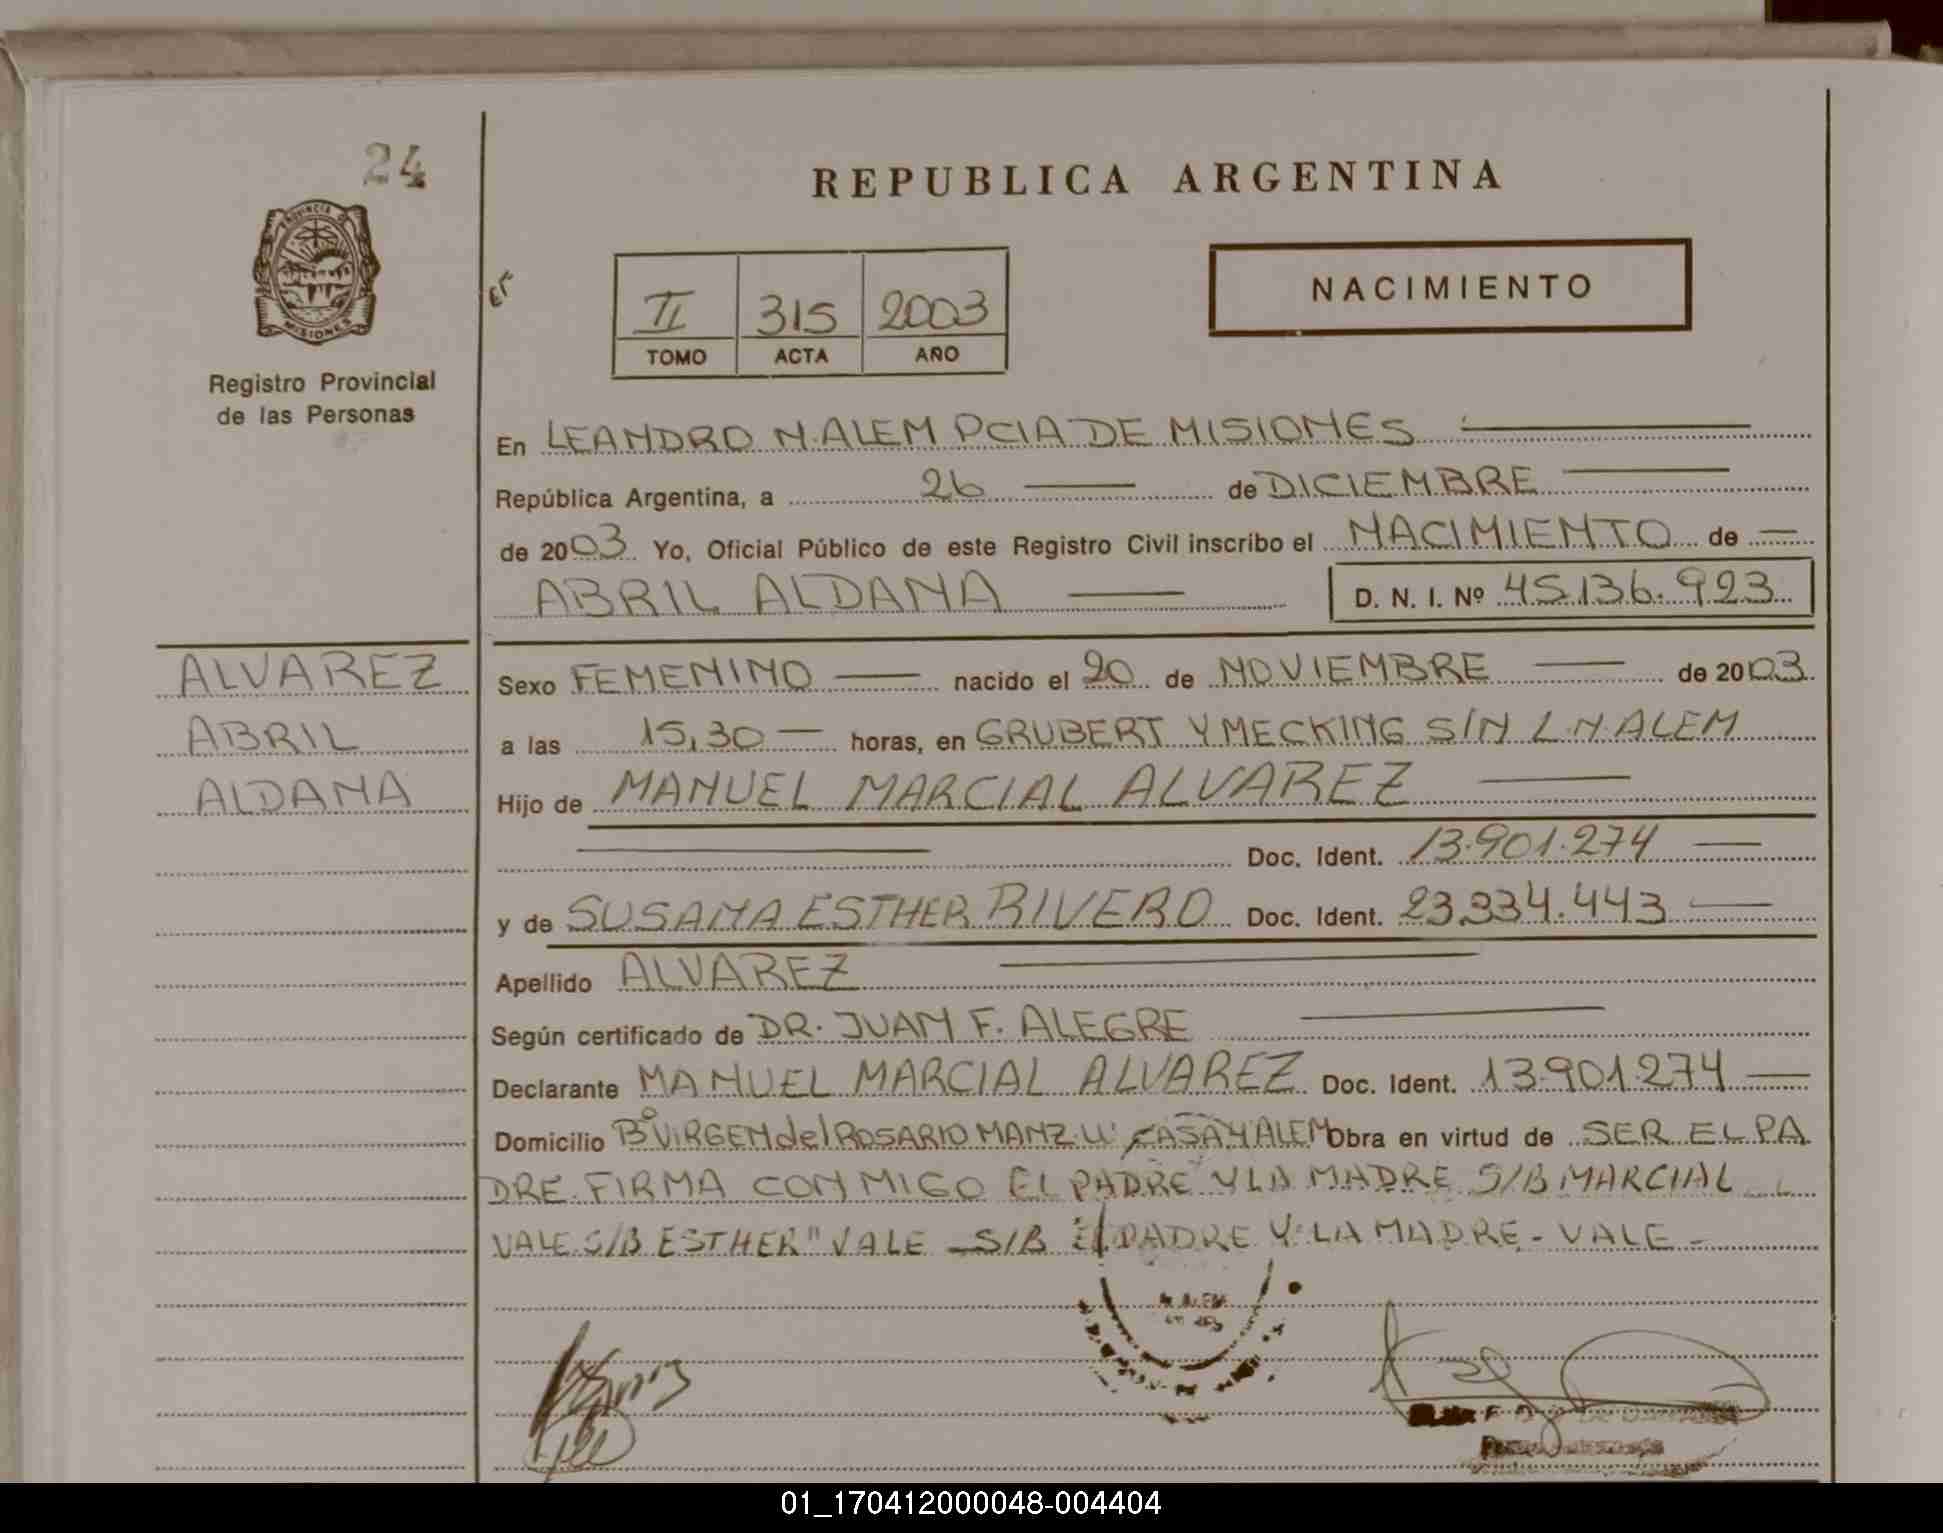 24
REPUBLICA ARGENTINA
PROVINCIA DE
MISIONES
Registro Provincial
de las Personas
II 315 2003
TOMO ACTA AÑO
NACIMIENTO
En LEANDRO N. ALEM PCIA DE MISIONES
República Argentina, a 26 de DICIEMBRE
de 2003 Yo, Oficial Público de este Registro Civil inscribo el NACIMIENTO de
ABRIL ALDANA D. N. I. Nº 45.136.923
ALVAREZ
ABRIL
ALDANA
Sexo FEMENINO nacido el 20 de NOVIEMBRE de 2003
a las 15,30 horas, en GRUBERT Y MECKING S/N L.N.ALEM
Hijo de MANUEL MARCIAL ALVAREZ
Doc. Ident. 13.901.274
y de SUSANA ESTHER RIVERO Doc. Ident. 23.334.443
Apellido ALVAREZ
Según certificado de DR. JUAN F. ALEGRE
Declarante MANUEL MARCIAL ALVAREZ Doc. Ident. 13.901.274
Domicilio Bº VIRGEN del ROSARIO MANZ. CASA ALEM Obra en virtud de SER EL PA
DRE FIRMA CONMIGO EL PADRE Y LA MADRE S/B MARCIAL
VALE S/B ESTHER" VALE S/B EL PADRE Y LA MADRE - VALE -
N. ALEM
01_170412000048-004404